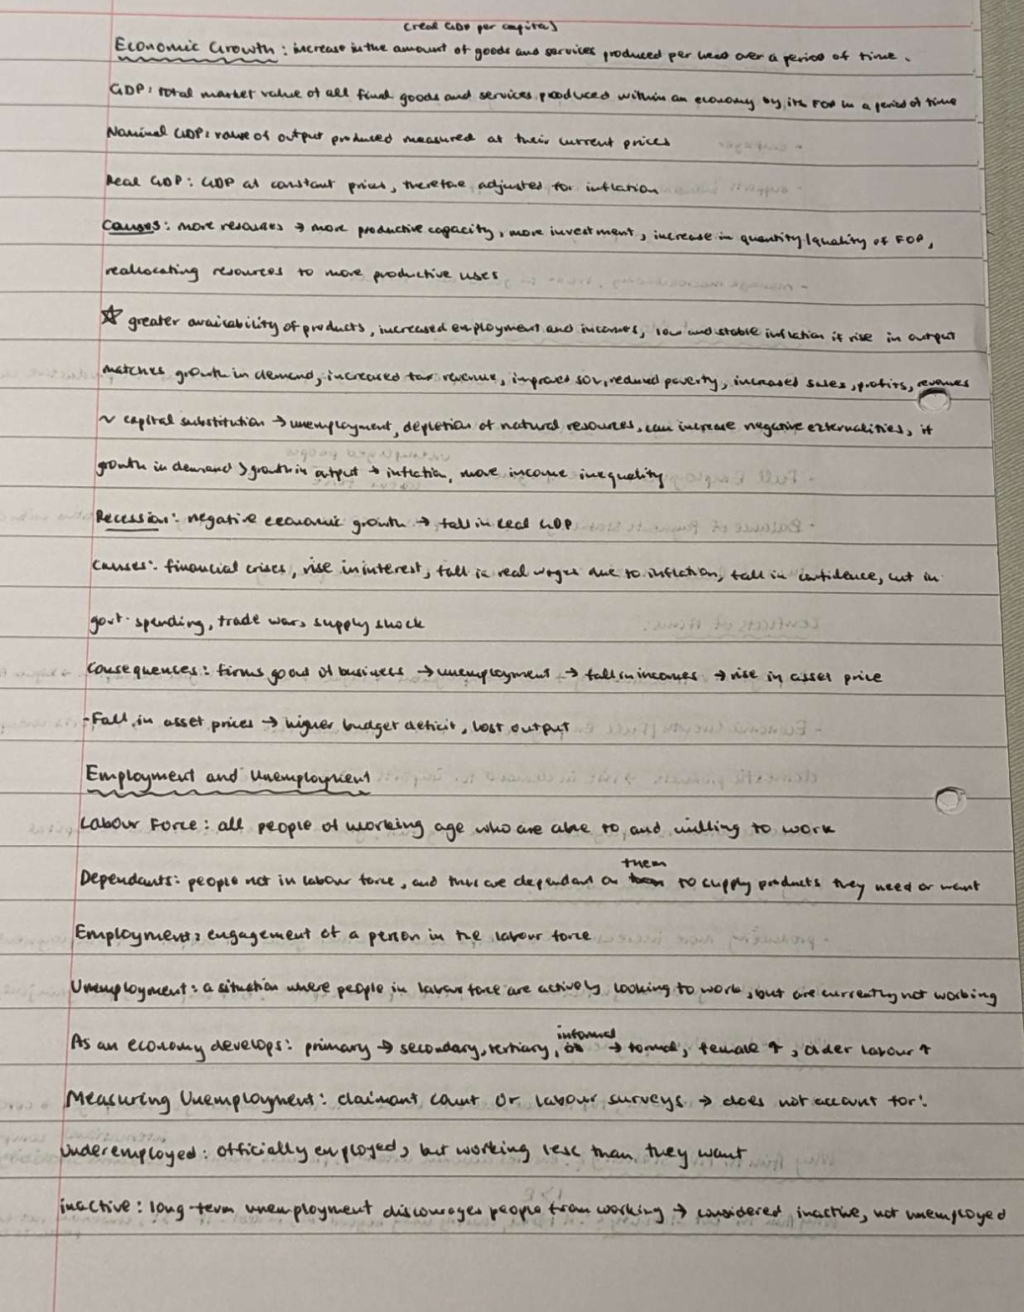 (real GDP per capita)
Economic Growth: increase in the amount of goods and services produced per head over a period of time.
GDP: total market value of all final goods and services produced within an economy by its FOP in a period of time
Nominal GDP: value of output produced measured at their current prices
Real GDP: GDP at constant prices, therefore adjusted for inflation
Causes: more resources → more productive capacity, more investment, increase in quantity/quality of FOP,
reallocating resources to more productive uses
☆ greater availability of products, increased employment and incomes, low and stable inflation if rise in output
matches growth in demand, increased tax revenue, improved SOL, reduced poverty, increased sales, profits, revenues
~ capital substitution → unemployment, depletion of natural resources, can increase negative externalities, if
growth in demand > growth in output → inflation, more income inequality
Recession: negative economic growth → fall in real GDP
Causes: financial crises, rise in interest, fall in real wages due to inflation, fall in confidence, cut in
govt. spending, trade wars, supply shock
Consequences: firms go out of business → unemployment → fall in incomes → rise in asset price
-Fall in asset prices → higher budget deficit, lost output
Employment and Unemployment
Labour Force: all people of working age who are able to, and willing to work
Dependants: people not in labour force, and thus are dependant on them to supply products they need or want
Employment: engagement of a person in the labour force
Unemployment: a situation where people in labour force are actively looking to work, but are currently not working
As an economy develops: primary → secondary, tertiary, informal → formal, female ↑, older labour ↑
Measuring Unemployment: claimant count or labour surveys → does not account for:
Underemployed: officially employed, but working less than they want
inactive: long-term unemployment discourages people from working → considered inactive, not unemployed